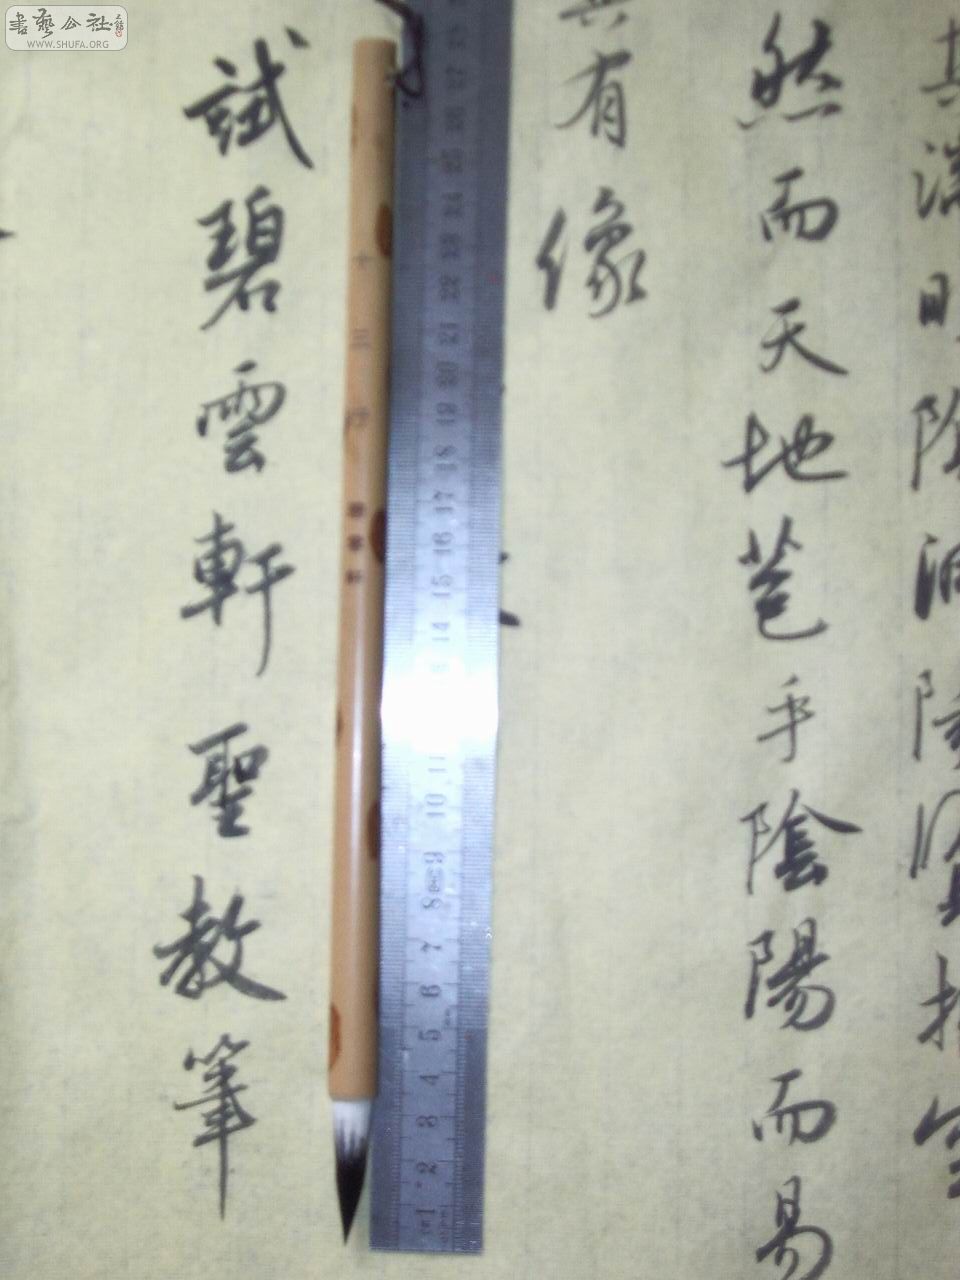 其端明陰洞陽賢哲
然而天地苞乎陰陽而易
其有像
27 26 25 24 23 22 21 20 19 18 17 16 15 14 11 10 9 8 7 6 5 4 3 2 1
十三行 碧雲軒
試碧雲軒聖教筆
書藝公社
WWW.SHUFA.ORG